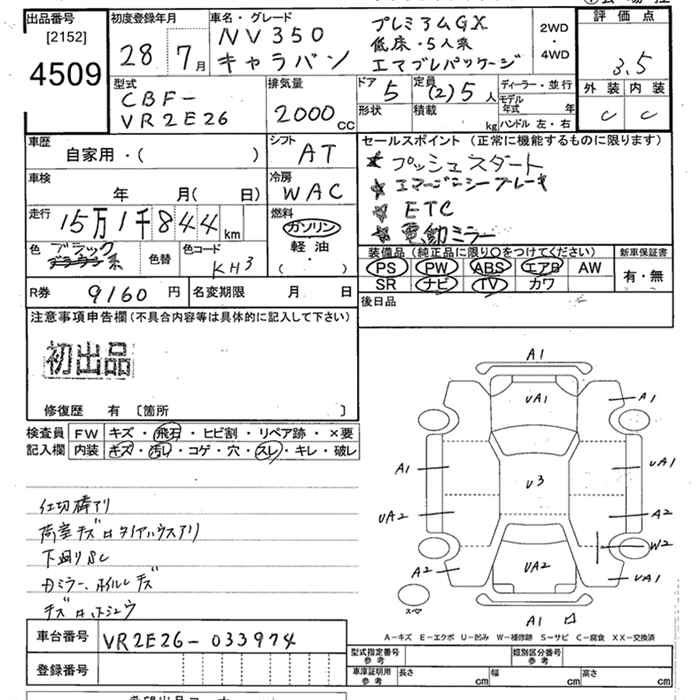 出品番号
[2152]
4509
初度登録年月
28年 7月
車名・グレード
NV350
キャラバン
プレミアムGX
低床・5人乗
エマブレパッケージ
2WD
・
4WD
評価点
3.5
外装 内装
C C
型式
CBF-
VR2E26
排気量
2000cc
ドア 5
形状
定員 (2)5人
積載 kg
ディーラー・並行
モデル年式 年
ハンドル 左・右
車歴
自家用・( )
シフト AT
車検
年 月( 日)
冷房 WAC
走行
15万1千844km
燃料
ガソリン
軽油
・( )
色 ブラック系
色替
色コード KH3
R券 9160円
名変期限 月 日
セールスポイント(正常に機能するものに限ります)
プッシュスタート
エマージェンシーブレーキ
ETC
電動ミラー
装備品(純正品に限り○をつけてください)
PS PW ABS エアB AW
SR ナビ TV カワ
新車保証書
有・無
後日品
注意事項申告欄(不具合内容等は具体的に記入して下さい)
初出品
修復歴 有〔箇所 〕
検査員 FW キズ・飛石・ヒビ割・リペア跡・×要
記入欄 内装 キズ・汚レ・コゲ・穴・スレ・キレ・破レ
仕切棒アリ
下廻りSC
A1
UA1
A1
A1
U3
UA1
UA2
A2
W2
A2
UA2
UA1
スペア
A1
A-キズ E-エクボ U-凹み W-補修跡 S-サビ C-腐食 XX-交換済
車台番号 VR2E26-033974
登録番号
型式指定番号 参考
類別区分番号 参考
車庫証明用 参考
長さ cm
幅 cm
高さ cm